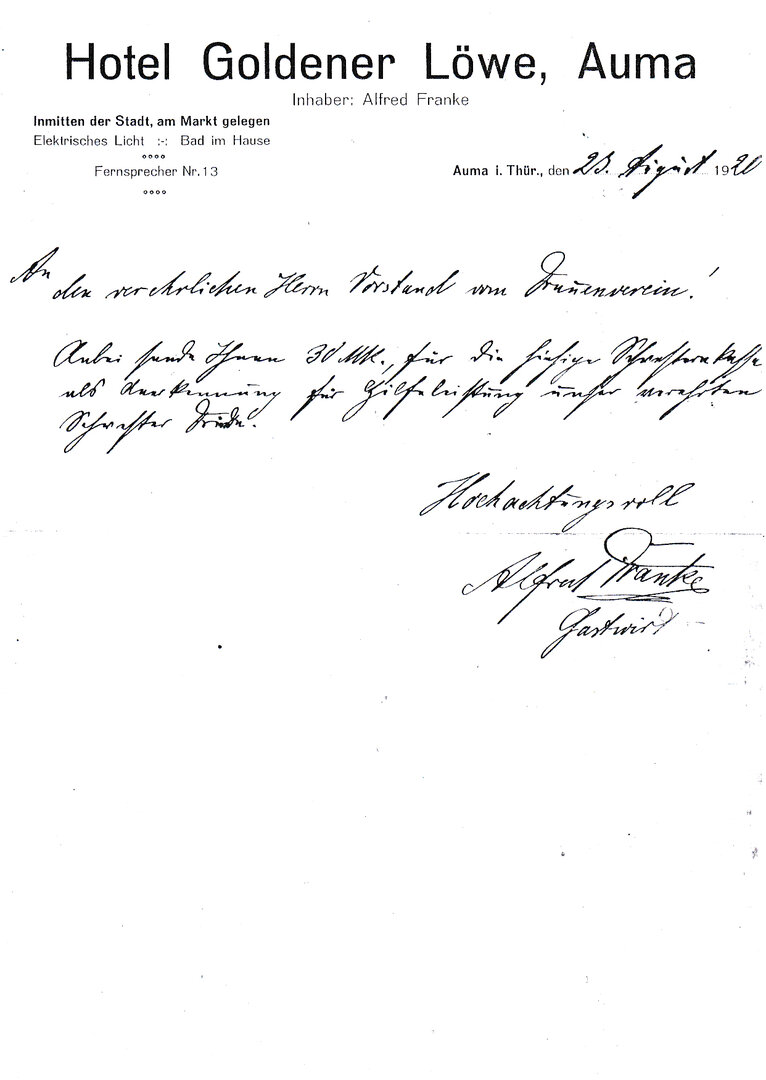 Hotel Goldener Löwe, Auma
Inhaber: Alfred Franke
Inmitten der Stadt, am Markt gelegen
Elektrisches Licht :-: Bad im Hause
Fernsprecher Nr. 13
Auma i. Thür., den 23. August 1920
An
den verehrlichen Herrn Vorstand vom Frauenverein!
Anbei sende Ihnen 30 Mk., für die hiesige Schwesternkasse
als Anerkennung für Hilfeleistung unser verehrten
Schwester
Hochachtungsvoll
Alfred Franke
Gastwirt